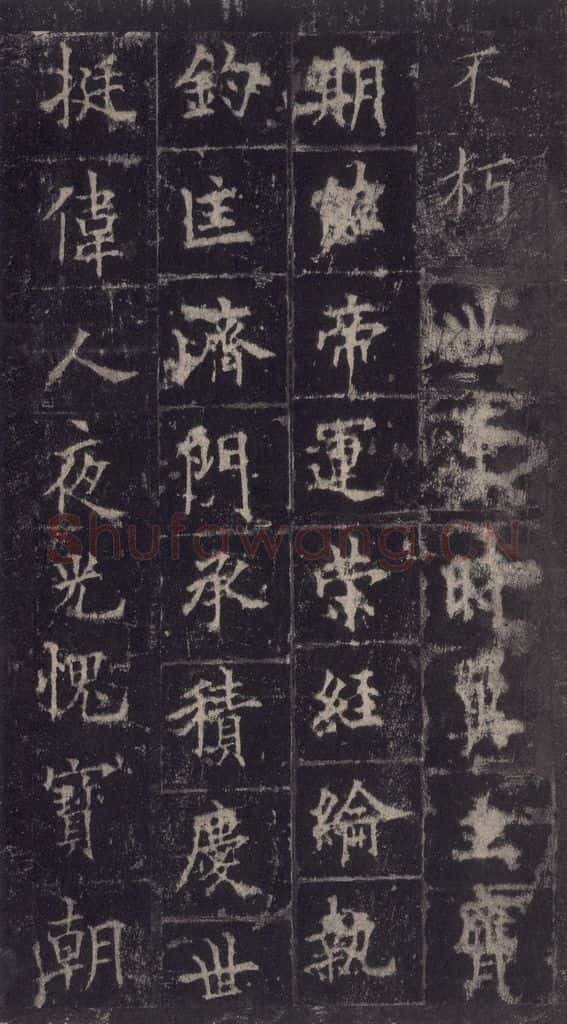 不朽世時主膺
期帝運策經綸執
鈞匡濟門承積慶世
挺偉人夜光愧寶朝
Shufawang.CN